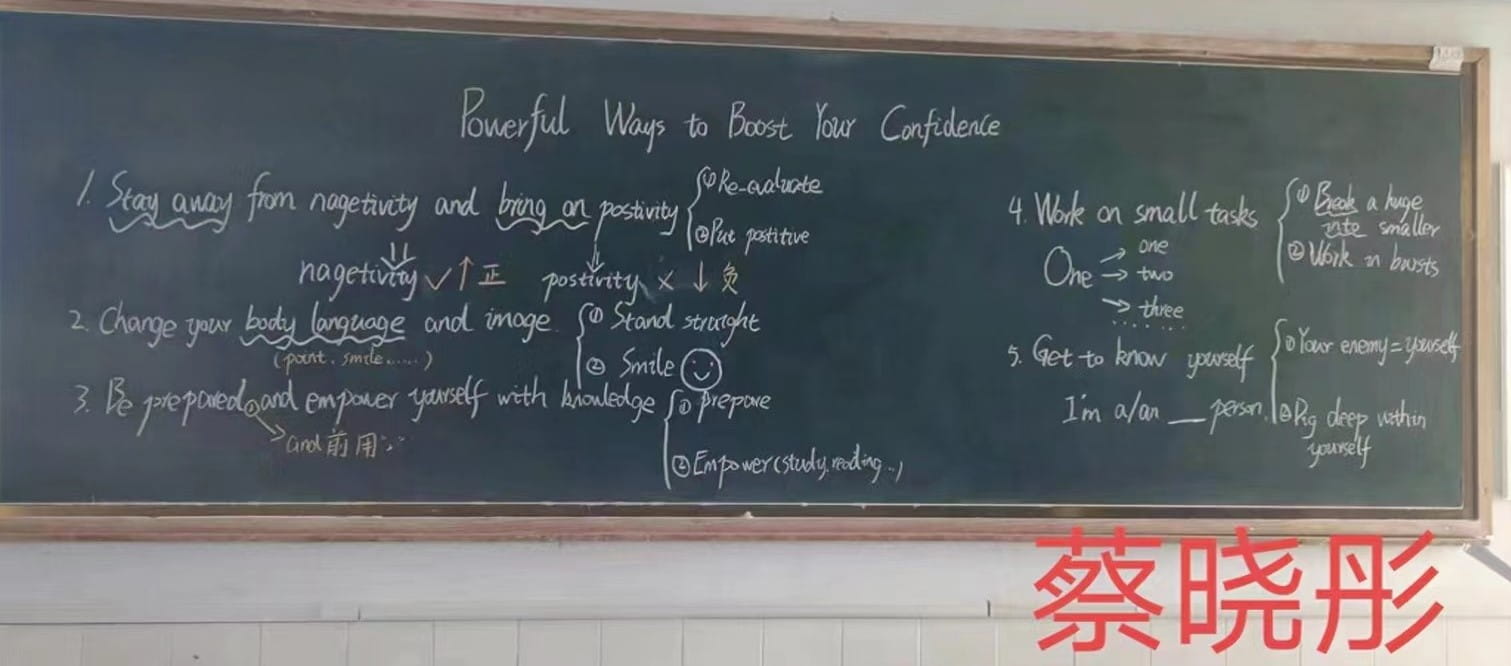 Powerful Ways to Boost Your Confidence
1. Stay away from nagetivity and bring on postivity
① Re-evaluate
② Put postitive
nagetivity ✓ ↑ 正 postivity × ↓ 负
2. Change your body language and image
(point. smile......)
① Stand straight
② Smile
3. Be prepared, and empower yourself with knowledge
and前用
① prepare
② Empower (study. reading...)
4. Work on small tasks
① Break a huge
into smaller
② Work in bursts
One → one
→ two
→ three
......
5. Get to know yourself
① Your enemy = yourself
② Dig deep within
yourself
I'm a/an __ person.
蔡晓彤